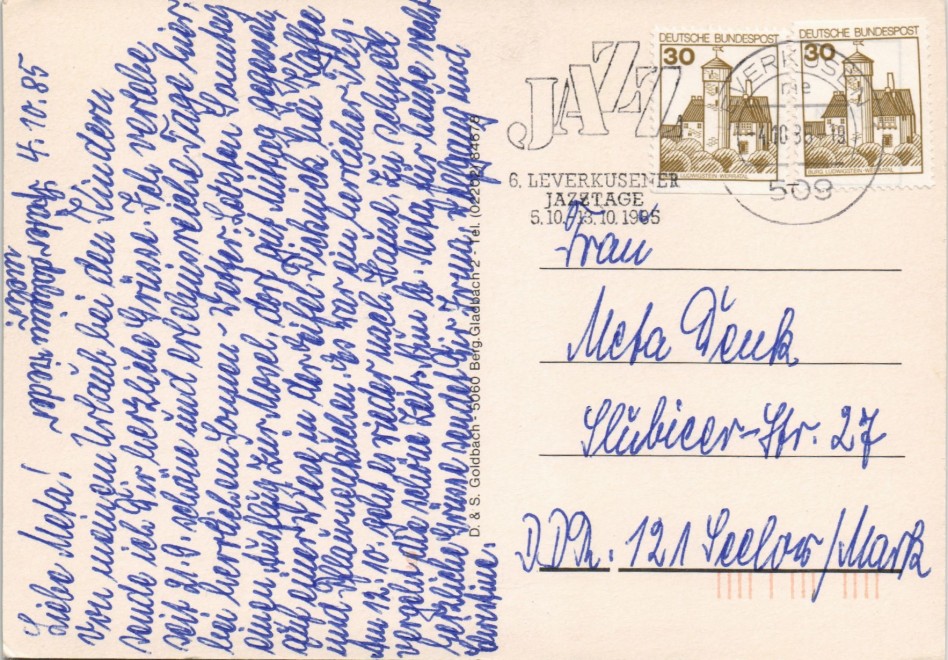 Liebe Meta! Leverkusen 4.10.85
Von meinem Urlaub bei den Kindern
sende ich Dir herzliche Grüsse. Ich verlebe
seit 21.9. schöne und erlebnisreiche Tage hier
bei herrlichem Sonnen-Wetter. Letzten Samstag
einen Ausflug zur Mosel, dort zu Mittag gegessen,
auf einer in der Eifel Picknick bei Kaffee
und Pflaumenkuchen. Es war ein herrlicher Tag.
Am 12.10. geht's wieder nach Hause. Zu schnell
vergeht die schöne Zeit. Nun l. Meta, für heute recht
herzliche Grüsse sendet Dir Irma, und
DEUTSCHE BUNDESPOST
30
BURG LUDWIGSTEIN WERRATAL
DEUTSCHE BUNDESPOST
30
BURG LUDWIGSTEIN WERRATAL
JAZZ
6. LEVERKUSENER
JAZZTAGE
5.10.-13.10.1985
509
D. & S. Goldbach - 5060 Berg. Gladbach 2 - Tel. (02202) 84678
Frau
Meta Denk
Slubicer-Str. 27
DDR. 121 Seelow/Mark